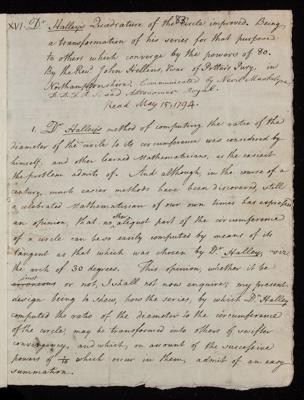 XVI. Dr. Halley's Quadrature of the Circle improved. Being
a transformation of his series for that purpose
to others which converge by the powers of 80.
By the Revd. John Hellins, Vicar of Potter's Pury, in
Northamptonshire. Communicated by Nevil Maskelyne
F.R.S. and Astronomer Royal.
Read May 15, 1794.
1. Dr. Halley's method of computing the ratio of the
diameter of the circle to its circumference was considered by
himself, and other learned Mathematicians, as the easiest
the problem admits of. And although, in the course of a
century, much easier methods have been discovered, still
a celebrated Mathematician of our own times has expressed
an opinion, that no other aliquot part of the circumference
of a circle can be so easily computed by means of its
tangent as that which was chosen by Dr. Halley, viz
the arch of 30 degrees. This opinion, whether it be
just
or not, I shall not now enquire; my present
design being to shew, how the series, by which Dr. Halley
computed the ratio of the diameter to the circumference
of the circle, may be transformed into others of swifter
convergency, and which, on account of the successive
powers of 1/10 which occur in them, admit of an easy
summation.